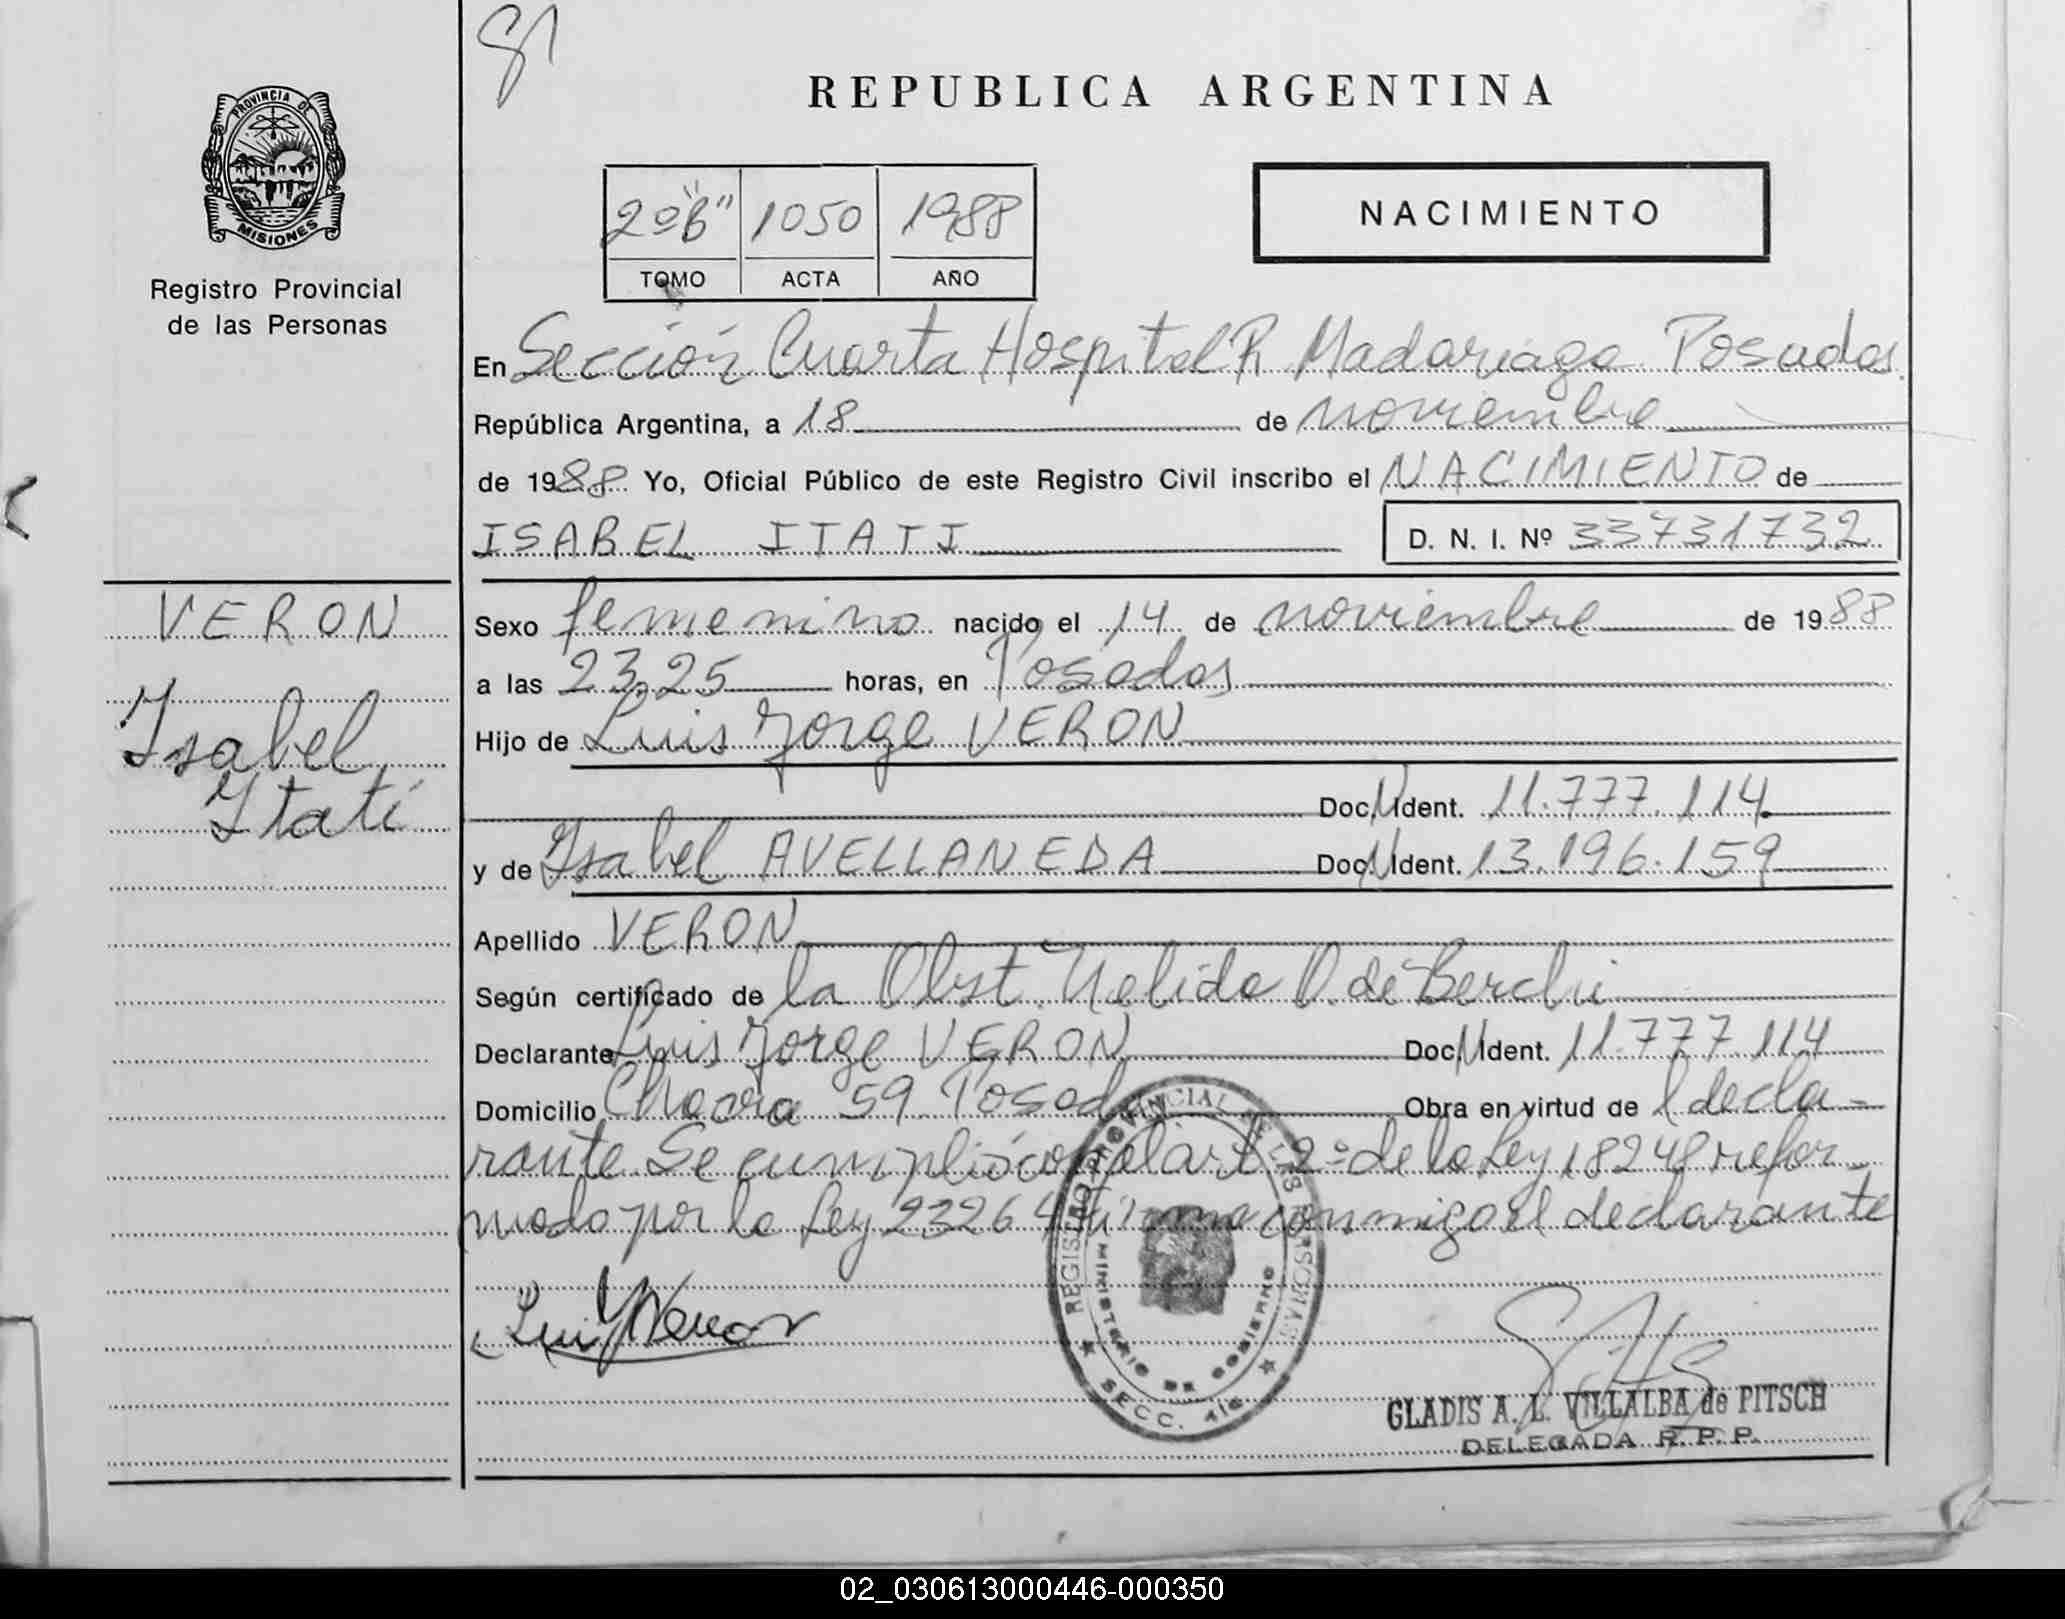 81
REPUBLICA ARGENTINA
PROVINCIA DE
MISIONES
Registro Provincial
de las Personas
2º "B" 1050 1988
TOMO ACTA AÑO
NACIMIENTO
En Sección Cuarta Hospital R. Madariaga Posadas
República Argentina, a 18 de noviembre
de 1988 Yo, Oficial Público de este Registro Civil inscribo el NACIMIENTO de
ISABEL ITATI D. N. I. Nº 33731732
VERON
Isabel
Itatí
Sexo femenino nacido el 14 de noviembre de 1988
a las 23,25 horas, en Posadas
Hijo de Luis Jorge VERON
Doc. N Ident. 11.777.114
y de Isabel AVELLANEDA Doc. N Ident. 13.196.159
Apellido VERON
Según certificado de la Obst. Nelida O. de Berchi
Declarante Luis Jorge VERON Doc. N Ident. 11.777.114
Domicilio Chacra 59 Posadas Obra en virtud de l decla-
rante Se cumplió con el art 2º de la Ley 18248 refor-
mado por la Ley 23264 Firma conmigo el declarante
REGISTRO PROVINCIAL DE LAS PERSONAS
MINISTERIO DE GOBIERNO
SECC. 4ta
Luis J Veron
GLADIS A. L. VILLALBA de PITSCH
DELEGADA R. P. P.
02_030613000446-000350